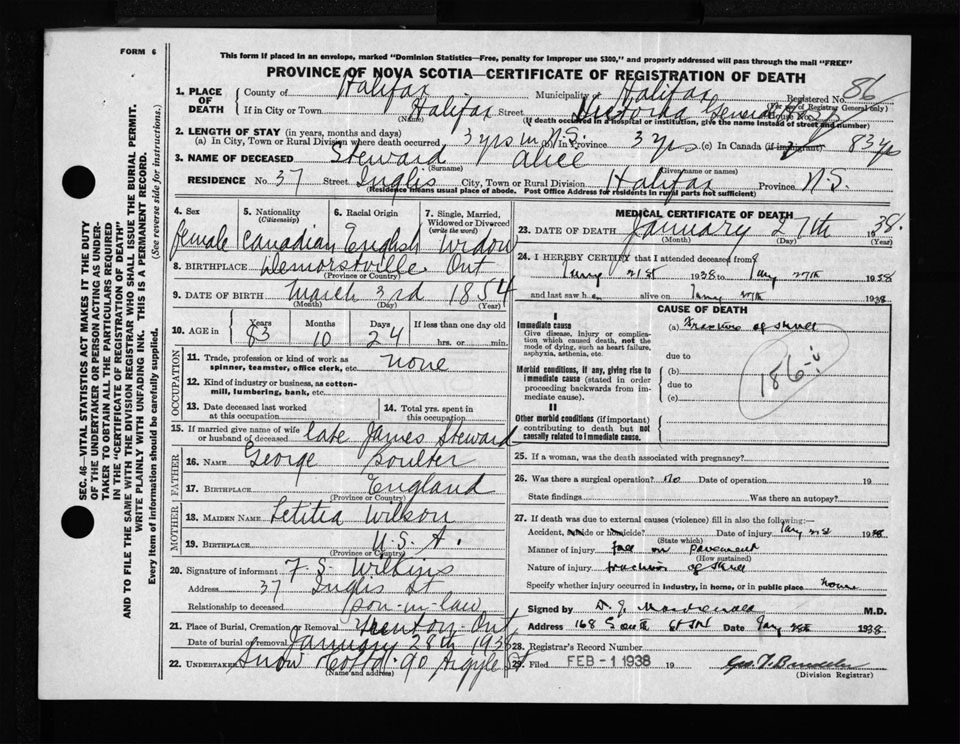 FORM 6
This form if placed in an envelope, marked "Dominion Statistics—Free, penalty for improper use $300," and properly addressed will pass through the mail "FREE"
PROVINCE OF NOVA SCOTIA—CERTIFICATE OF REGISTRATION OF DEATH
1. PLACE OF DEATH County of Halifax Municipality of Halifax Registered No. 86
(For use of Registrar General only)
If in City or Town Halifax Street Victoria General House No.
(Name) (If death occurred in a hospital or institution, give the name instead of street and number)
2. LENGTH OF STAY (in years, months and days)
(a) In City, Town or Rural Division where death occurred 3 yrs in N.S. (b) In Province 3 yrs (c) In Canada (if immigrant) 83 yrs
3. NAME OF DECEASED Steward Alice
(Surname) (Given name or names)
RESIDENCE No. 37 Street Inglis City, Town or Rural Division Halifax Province N.S.
(Residence means usual place of abode. Post Office Address for residents in rural parts not sufficient)
4. Sex 5. Nationality (Citizenship) 6. Racial Origin 7. Single, Married, Widowed or Divorced (write the word)
female Canadian English Widow
8. BIRTHPLACE Demorstville Ont
(Province or Country)
9. DATE OF BIRTH March 3rd 1854
(Month) (Day) (Year)
10. AGE in Years Months Days If less than one day old
83 10 24 hrs. or min.
OCCUPATION
11. Trade, profession or kind of work as spinner, teamster, office clerk, etc. none
12. Kind of industry or business, as cotton-mill, lumbering, bank, etc.
13. Date deceased last worked at this occupation
14. Total yrs. spent in this occupation
15. If married give name of wife or husband of deceased late James Steward
FATHER
16. Name George Poulter
17. Birthplace England
(Province or Country)
MOTHER
18. Maiden Name Letitia Wilson
19. Birthplace U.S.A.
(Province or Country)
20. Signature of informant F. S. Wilkins
Address 37 Inglis St
Relationship to deceased son-in-law
21. Place of Burial, Cremation or Removal Trenton Ont
Date of burial or removal January 28th 1938
22. Undertaker Snow & Co Ltd. 90 Argyle St
(Name and address)
MEDICAL CERTIFICATE OF DEATH
23. DATE OF DEATH January 27th 1938.
(Month) (Day) (Year)
24. I HEREBY CERTIFY that I attended deceased from
Jany 21st 1938 to Jany 27th 1938
and last saw h er alive on Jany 27th 1938
CAUSE OF DEATH
I
Immediate cause
Give disease, injury or complication which caused death, not the mode of dying, such as heart failure, asphyxia, asthenia, etc.
(a) Fracture of skull
due to
Morbid conditions, if any, giving rise to immediate cause (stated in order proceeding backwards from immediate cause).
(b)
due to
(c)
186-i
II
Other morbid conditions (if important) contributing to death but not causally related to immediate cause.
25. If a woman, was the death associated with pregnancy?
26. Was there a surgical operation? no Date of operation 19
State findings Was there an autopsy?
27. If death was due to external causes (violence) fill in also the following:—
Accident, suicide or homicide? Date of injury Jany 21st 1938
(State which)
Manner of injury fall on pavement
(How sustained)
Nature of injury fracture of skull
Specify whether injury occurred in industry, in home, or in public place home
Signed by M.D.
Address 168 South St Date Jany 28th 1938
28. Registrar's Record Number
29. Filed FEB - 1 1938 19
(Division Registrar)
SEC. 46—VITAL STATISTICS ACT MAKES IT THE DUTY
OF THE UNDERTAKER OR PERSON ACTING AS UNDERTAKER TO OBTAIN ALL THE PARTICULARS REQUIRED
IN THE "CERTIFICATE OF REGISTRATION OF DEATH"
AND TO FILE THE SAME WITH THE DIVISION REGISTRAR WHO SHALL ISSUE THE BURIAL PERMIT.
WRITE PLAINLY WITH UNFADING INK. THIS IS A PERMANENT RECORD.
Every item of information should be carefully supplied. (See reverse side for instructions.)